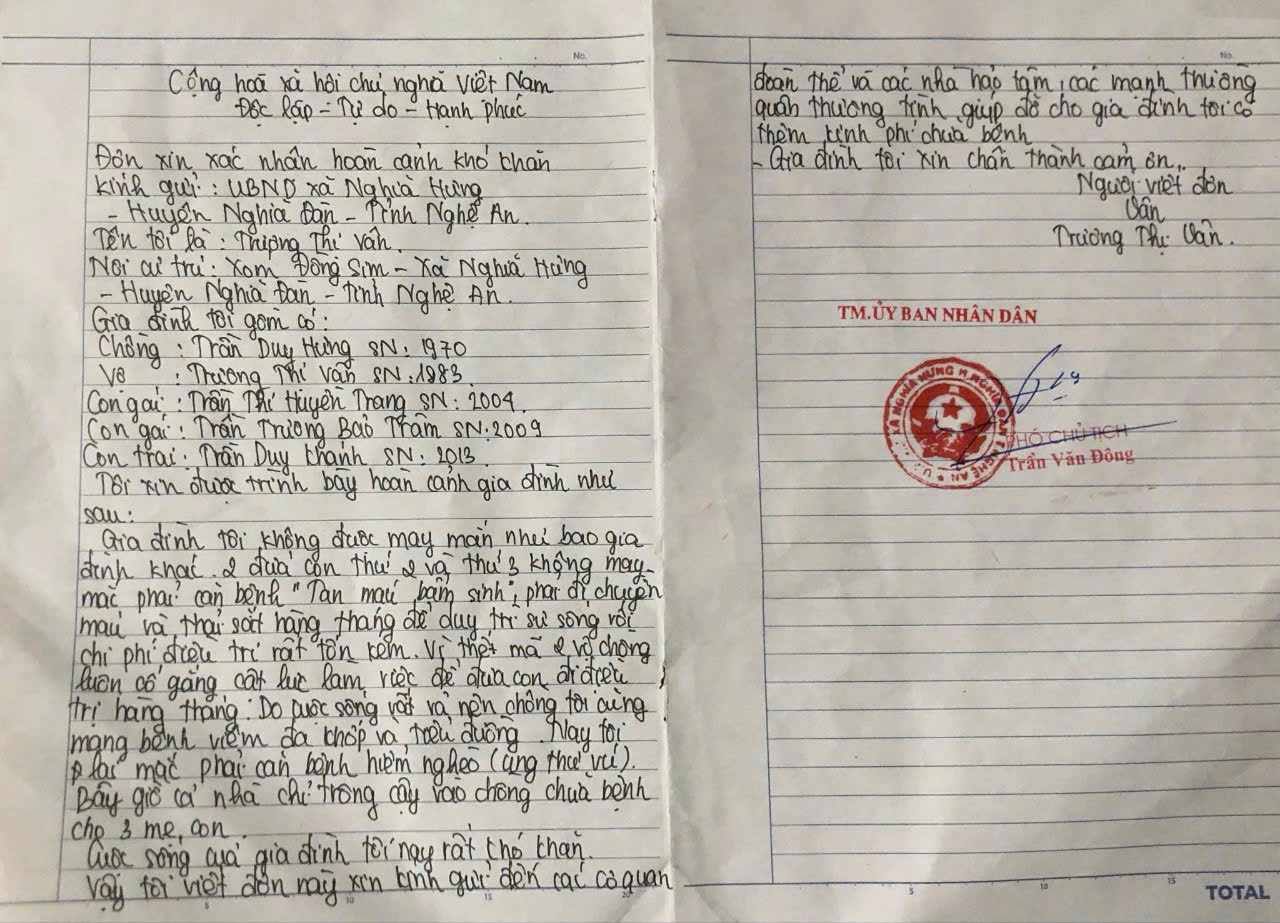 No.
Cộng hoà xã hội chủ nghĩa Việt Nam
Độc lập - Tự do - Hạnh phúc
Đơn xin xác nhận hoàn cảnh khó khăn
kính gửi : UBND xã Nghĩa Hưng
- Huyện Nghĩa Đàn - Tỉnh Nghệ An.
Tên tôi là : Trương Thị Vân.
Nơi cư trú : Xóm Đồng Sim - Xã Nghĩa Hưng
- Huyện Nghĩa Đàn - tỉnh Nghệ An.
Gia đình tôi gồm có :
Chồng : Trần Duy Hưng SN : 1970
Vợ : Trương Thị Vân SN : 1983.
Con gái : Trần Thị Huyền Trang SN : 2004.
Con gái : Trần Trương Bảo Trâm SN : 2009
Con trai : Trần Duy Khánh SN : 2013.
Tôi xin được trình bày hoàn cảnh gia đình như
sau :
Gia đình tôi không được may mắn như bao gia
đình khác. 2 đứa con thứ 2 và thứ 3 không may
mắc phải căn bệnh "Tan máu bẩm sinh", phải đi chuyền
máu và thải sắt hàng tháng để duy trì sự sống với
chi phí điều trị rất tốn kém. Vì thế mà 2 vợ chồng
luôn cố gắng cật lực làm việc để đưa con đi điều
trị hàng tháng. Do cuộc sống vất vả nên chồng tôi cũng
mang bệnh viêm đa khớp và tiểu đường. Nay tôi
lại mắc phải căn bệnh hiểm nghèo (ung thư vú).
Bây giờ cả nhà chỉ trông cậy vào chồng chữa bệnh
cho 3 mẹ con.
Cuộc sống của gia đình tôi nay rất khó khăn.
Vậy tôi viết đơn này xin kính gửi đến các cơ quan
5 10 15 20
No.
đoàn thể và các nhà hảo tâm, các mạnh thường
quân thương tình giúp đỡ cho gia đình tôi có
thêm kinh phí chữa bệnh
- Gia đình tôi xin chân thành cảm ơn..
Người viết đơn
Vân
Trương Thị Vân.
TM.ỦY BAN NHÂN DÂN
XÃ NGHĨA HƯNG H.NGHĨA ĐÀN T.NGHỆ AN
PHÓ CHỦ TỊCH
Trần Văn Đông
5 10 15
TOTAL